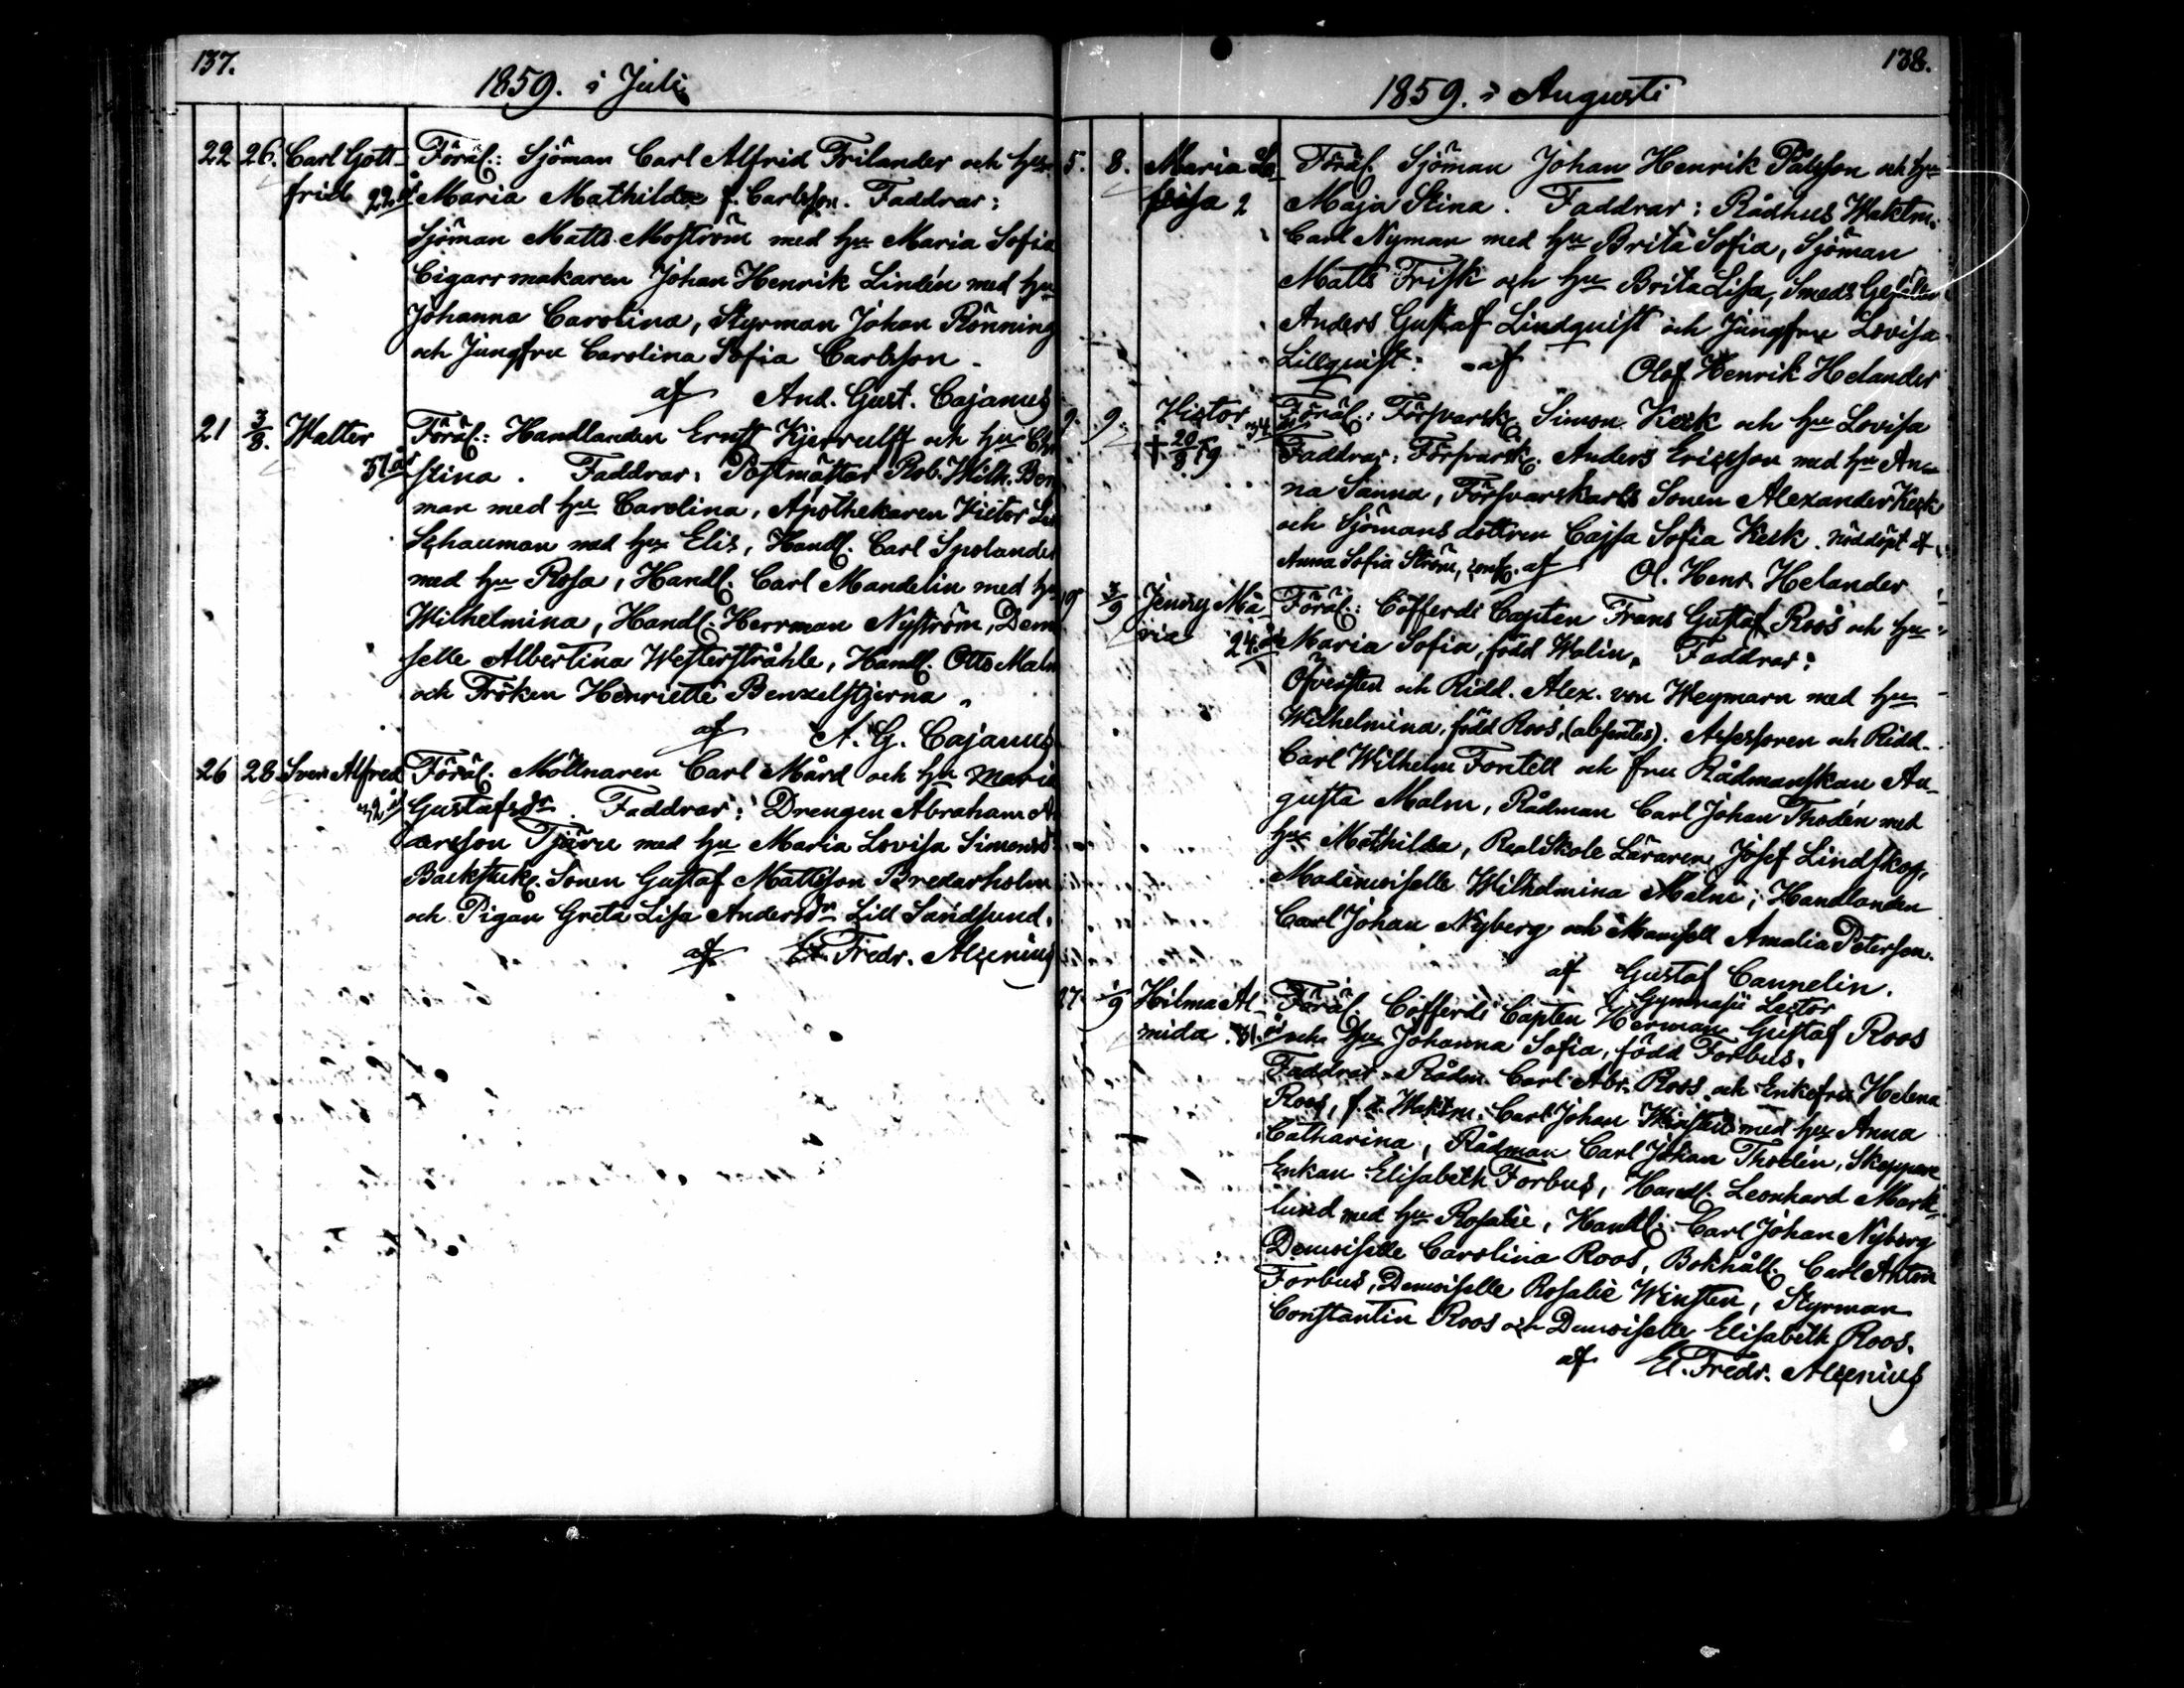 137.
1859. i Juli
22 26. Carl Gott- Föräl.: Sjöman Carl Alfrid Frilander och hu
frid 22 år Maria Mathilda f. Carlsson. Faddrar:
Sjöman Matts Moström med hu Maria Sofia
Cigarrmakaren Johan Henrik Lindén med hu
Johanna Carolina, Styrman Johan Rönning
och Jungfru Carolina Sofia Carlsson.
af And. Gust. Cajanus
21 3/8. Walter Föräl.: Handlanden Ernst Kjerrulff och hu Chri
37 år stina. Faddrar: Postmästar Rob. Wilh. Bon
man med hu Carolina, Apothekaren Victor
Schauman med hu Elis, Handl. Carl Spolander
med hu Rosa, Handl. Carl Mandelin med hu
Wilhelmina, Handl. Herrman Nyström, Dem
selle Albertina Westerstråhle, Handl. Otto Malm
och Fröken Henriette Benzelstjerna.
af A. G. Cajanus
26 28 Sven Alfred Föräl. Möllnaren Carl Mård och hu Maria
32 år Gustafsdr. Faddrar: Drengen Abraham An
dersson Tjäru med hu Maria Lovisa Simonsdr
Backstuk. Sonen Gustaf Mattsson Bredarholm
och Pigan Greta Lisa Andersdr Lill Sandsund.
af El. Fredr. Alcenius
138.
1859. i Augusti
5. 8. Maria Lo- Föräl. Sjöman Johan Henrik Pålsson och hu
visa 2 Maja Stina. Faddrar: Rådhus Waktm.
Carl Nyman med hu Brita Sofia, Sjöman
Matts Frisk och hu Brita Lisa, Smeds Gesällen
Anders Gustaf Lindquist och Jungfru Lovisa
Lillquist. af Olof Henrik Helander
9. 9. Victor 34 Föräl.: Försvarsk. Simon Kesk och hu Lovisa
† 20/8 59 Faddrar: Försvarsk. Anders Ericsson med hu An-
na Sanna, Försvarskarls Sonen Alexander Kesk
och Sjömans dottren Cajsa Sofia Kesk. nöddöpt af
Anna Sofia Ström, af Ol. Henr. Helander
19 3/9 Jenny Ma Föräl.: Cofferdi Capten Frans Gustaf Roos och hu
ria 24. år Maria Sofia, född Walin. Faddrar:
Öfversten och Ridd. Alex. von Weymarn med hu
Wilhelmina, född Roos, (absentes). Assessoren och Ridd.
Carl Wilhelm Fontell och fru Rådmanskan Au-
gusta Malm, Rådman Carl Johan Thodén med
hu Mathilda, RealSkole Läraren Josef Lindskog,
Mademoiselle Wilhelmina Malm, Handlanden
Carl Johan Nyberg och Mamsell Amalia Peterson.
af Gustaf Cannelin.
Gymnasii Lector
27 1/9 Hilma Al- Föräl. Cofferdi Capten Herman Gustaf Roos
mida 31. år och hu Johanna Sofia, född Forbus.
Faddrar: Rådm. Carl Abr. Roos och Enkefru Helena
Roos, f. d. Waktm. Carl Johan Winsten med hu Anna
Catharina, Rådman Carl Johan Thodén, Skeppare
Enkan Elisabeth Forbus, Handl. Leonhard Mark-
lund med hu Rosalie, Handl. Carl Johan Nyberg
Demoiselle Carolina Roos, Bokhåll. Carl Anton
Forbus, Demoiselle Rosalie Winsten, Styrman
Constantin Roos och Demoiselle Elisabeth Roos.
af El. Fredr. Alcenius